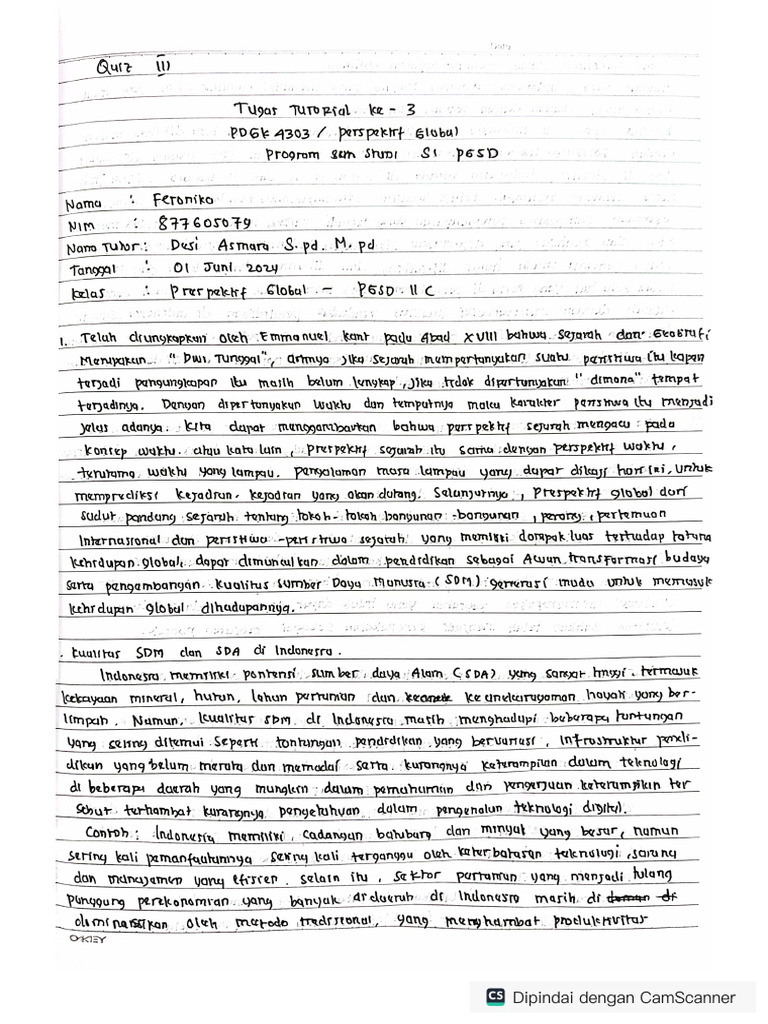 Quiz III
Tugas Tutorial ke - 3
PDGK 4303 / perspektif Global
Program Studi S1 PGSD
Nama : Feronika
NIM : 877605079
Nama Tutor : Desi Asmara S.pd. M.pd
Tanggal : 01 Juni 2024
Kelas : Prespektif Global - PGSD II C
1. Telah diungkapkan oleh Emmanuel kant pada Abad XVIII bahwa sejarah dan Geografi
Merupakan "Dwi Tunggal", artinya jika sejarah mempertanyakan suatu peristiwa itu kapan
terjadi pengungkapan itu masih belum lengkap, jika tidak dipertanyakan "dimana" tempat
terjadinya. Dengan dipertanyakan waktu dan tempatnya maka karakter peristiwa itu menjadi
jelas adanya. Kita dapat menggambarkan bahwa perspektif sejarah mengacu pada
konsep waktu. atau kata lain, prespektif sejarah itu sama dengan perspektif waktu,
terutama waktu yang lampau. pengalaman masa lampau yang dapat dikaji hari ini, untuk
memprediksi kejadian-kejadian yang akan datang. Selanjutnya, Prespektif global dari
sudut pandang sejarah tentang tokoh-tokoh bangunan-bangunan, perang, pertemuan
Internasional dan peristiwa-peristiwa sejarah yang memiliki dampak luas terhadap tatana
kehidupan global, dapat dimunculkan dalam pendidikan sebagai Awan transformasi budaya
serta pengambangan kualitas Sumber Daya Manusia (SDM) generasi muda untuk memasuk
kehidupan global dihadapannya.
. Kualitas SDM dan SDA di Indonesia.
Indonesia memiliki pontensi sumber daya Alam (SDA) yang sangat tinggi, termasuk
kekayaan mineral, hutan, lahan pertanian dan keanekaragaman hayati yang ber-
limpah. Namun, kualitas SDM di Indonesia masih menghadapi beberapa tantangan
yang sering ditemui seperti tantangan pendidikan yang bervariasi, infrastruktur pendi-
dikan yang belum merata dan memadai serta kurangnya keterampilan dalam teknologi
di beberapa daerah yang mungkin dalam pemahaman dan pengerjaan keterampilan ter
sebut terhambat kurangnya pengetahuan dalam pengenalan teknologi digital.
Contoh: Indonesia memiliki cadangan batubara dan minyak yang besar, namun
sering kali pemanfaatannya sering kali terganggu oleh keterbatasan teknologi, sarana
dan manajemen yang efisien. selain itu, sektor pertanian yang menjadi tulang
punggung perekonomian yang banyak di daerah di Indonesia masih di
dominasikan oleh metode tradisional, yang menghambat produktivitas
OKEY
CS Dipindai dengan CamScanner